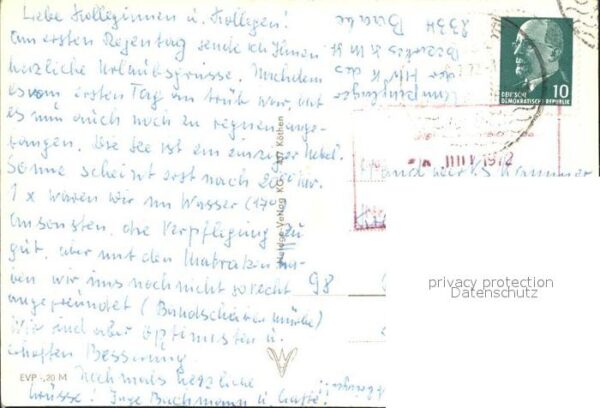 Liebe Kolleginnen u. Kollegen!
Am ersten Regentag sende ich Ihnen
herzliche Urlaubsgrüsse. Nachdem
es vom ersten Tag an trüb war, hat
es nun auch noch zu regnen ange-
fangen. Die See ist ein einziger Nebel.
Sonne scheint erst nach 20⁰⁰ Uhr.
1 x waren wir im Wasser (17°)
ansonsten, die Verpflegung
gut, aber mit den Matratzen ha-
ben wir uns noch nicht so recht
angefreundet (Bandscheiben mürbe)
Wir sind aber Optimisten u.
erhoffen Besserung.
Nochmals herzliche
Grüsse! Inge Bachmann u. Gatte.
EVP -,20 M
Verlag KG, 437 Köthen
98
des
10
DEUTSCHE
DEMOKRATISCHE REPUBLIK
1972
privacy protection
Datenschutz